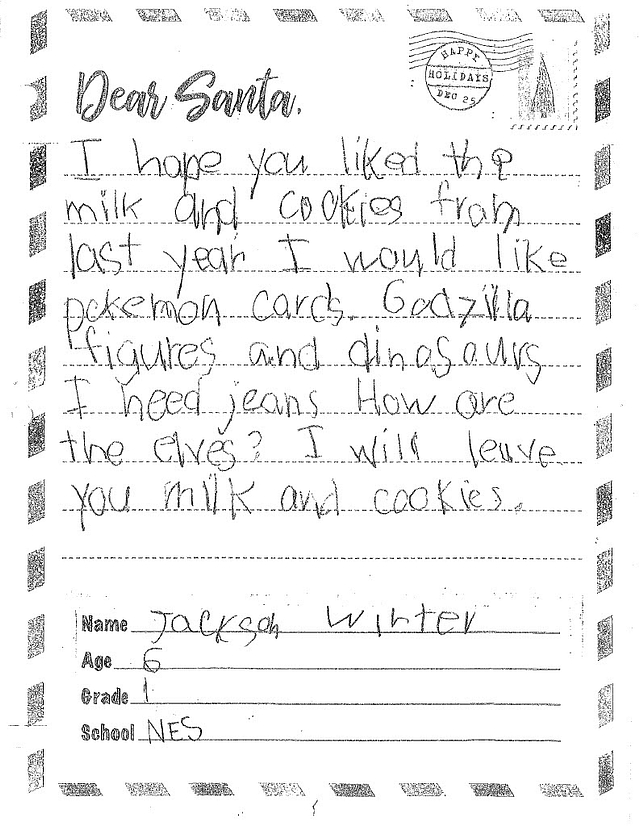 HAPPY
HOLIDAYS
DEC 25
Dear Santa,
I hope you liked the
milk and cookies from
last year I would like
pokemon cards. Godzilla
figures and dinosaurs
I need jeans How are
the elves? I will leave
you milk and cookies.
Name Jackson Winter
Age 6
Grade 1
School NES